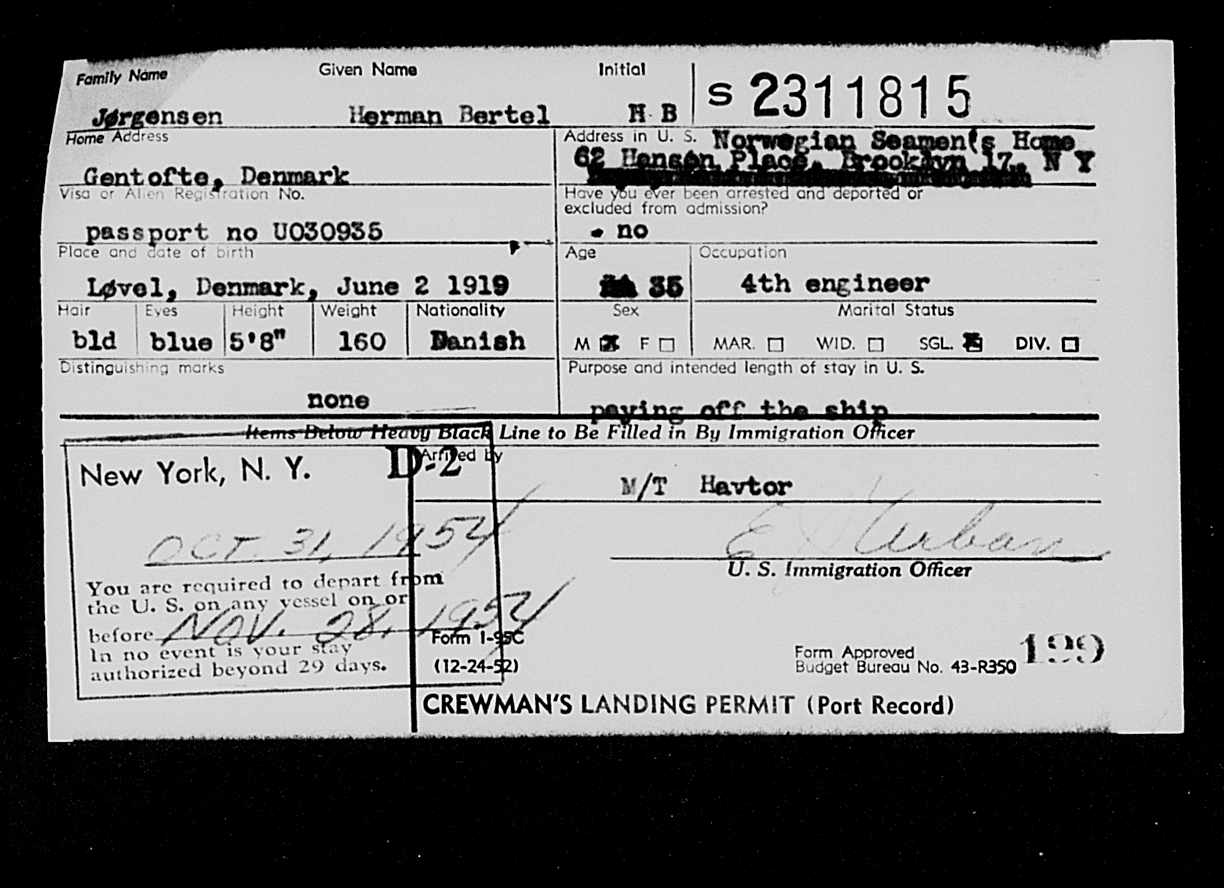 Family Name Given Name Initial
Jørgensen Herman Bertel H B S 2311815
Home Address Address in U. S. Norwegian Seamen's Home
62 Hanson Place, Brooklyn 17, N Y
Gentofte, Denmark
Visa or Alien Registration No. Have you ever been arrested and deported or
excluded from admission?
passport no U030935 no
Place and date of birth Age Occupation
Løvel, Denmark, June 2 1919 35 4th engineer
Hair Eyes Height Weight Nationality Sex Marital Status
bld blue 5'8" 160 Danish M X F MAR. WID. SGL. X DIV.
Distinguishing marks Purpose and intended length of stay in U. S.
none paying off the ship
Items Below Heavy Black Line to Be Filled in By Immigration Officer
New York, N. Y. D-2 Arrived by
M/T Havtor
OCT. 31, 1954
U. S. Immigration Officer
You are required to depart from
the U. S. on any vessel on or
before NOV. 28, 1954
In no event is your stay
authorized beyond 29 days.
Form I-95C
(12-24-52)
Form Approved
Budget Bureau No. 43-R350 199
CREWMAN'S LANDING PERMIT (Port Record)